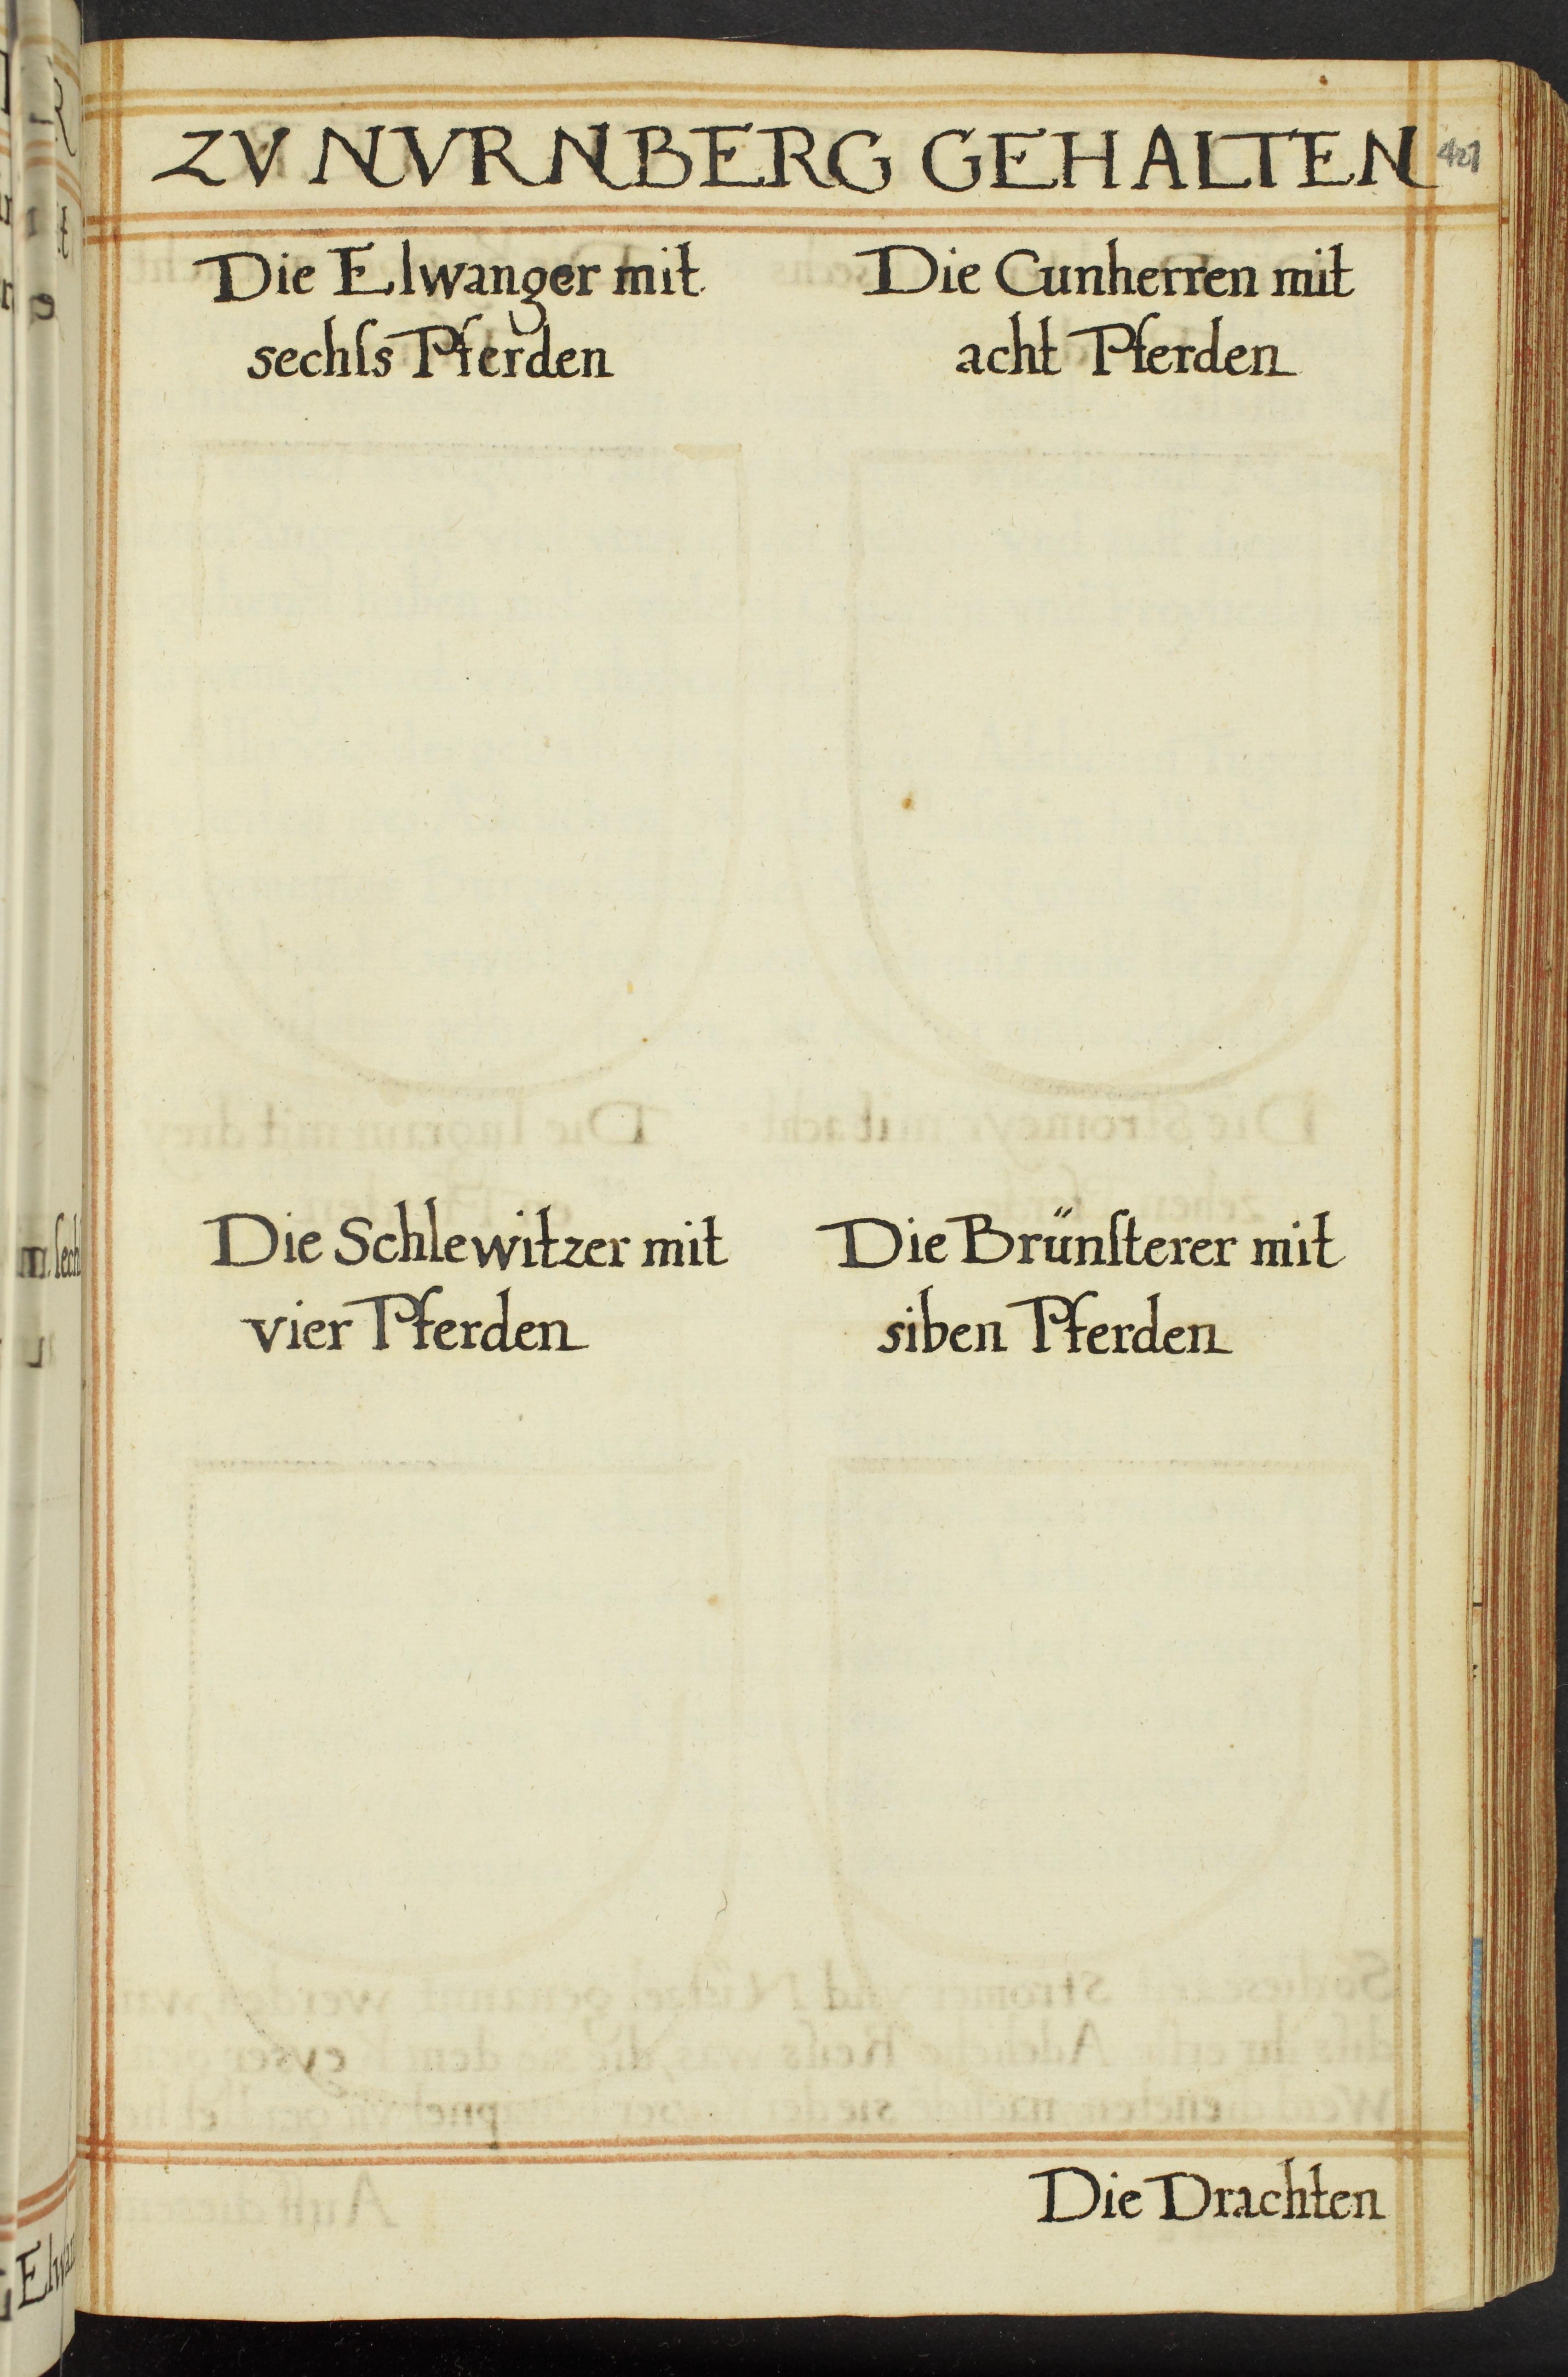 ZV NVRNBERG GEHALTEN
421
Die Elwanger mit
sechſs Pferden
Die Cunherren mit
acht Pferden
Die Schlewitzer mit
vier Pferden
Die Brünſterer mit
siben Pferden
Die Drachten